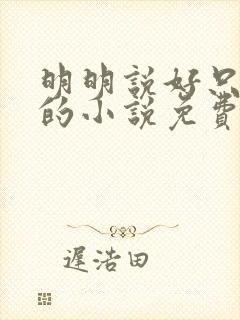 明明說好只
的小說免費
遲浩田